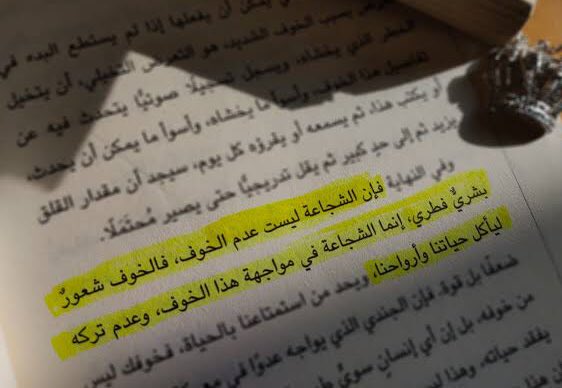 يمكن أن يفعلها إذا لم يستطع البدء في
بسبب الخوف الشديد، هو التعرض التخيلي، أن يتخيل
الخطر الذي يخشاه، ويسجل تسجيلًا صوتيًّا يتحدث فيه عن
تفاصيل هذا الخوف، وأسوأ ما يخشاه، وأسوأ ما يمكن أن يحدث،
أو يكتب هذا، ثم يسمعه أو يقرؤه كل يوم، سيجد أن مقدار القلق
يزيد ثم إلى حد كبير ثم يقل تدريجيًّا حتى يصير مُحتَمَلًا.
وفي النهاية فإن الشجاعة ليست عدم الخوف، فالخوف شعورٌ
بشريٌّ فطري، إنما الشجاعة في مواجهة هذا الخوف، وعدم تركه
ليأكل حياتنا وأرواحنا، ويحد من استمتاعنا بالحياة، فخوفك ليس
ضعفًا بل قوة. فإن الجندي الذي يواجه عدوًّا في
من خوفه، بل إن أي إنسان سويٍّ
يفقد حياته، وهذا